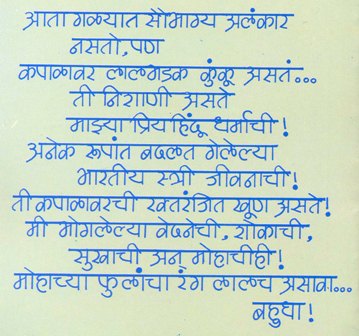 आता गळ्यात सौभाग्य अलंकार
नसतो, पण
कपाळावर लालभडक कुंकू असतं...
ती निशाणी असते
माझ्या प्रिय हिंदू धर्माची!
अनेक रूपांत बदलत गेलेल्या
भारतीय स्त्री जीवनाची!
ती कपाळावरची रक्तरंजित खूण असते!
मी भोगलेल्या वेदनेची, शोकाची,
सुखाची अन् मोहाचीही!
मोहाच्या फुलांचा रंग लालच असावा...
बहुधा!